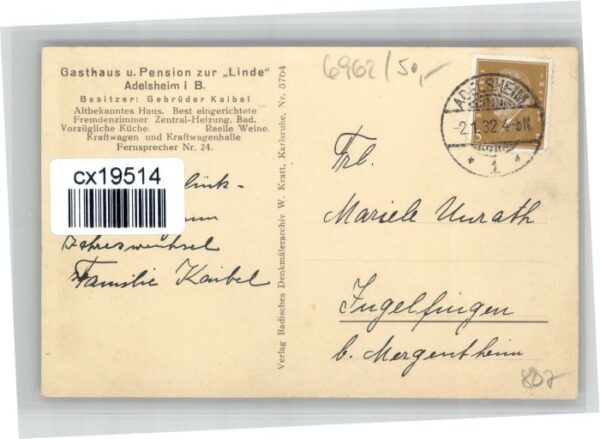 Gasthaus u. Pension zur „Linde"
Adelsheim i B.
Besitzer: Gebrüder Kaibel
Altbekanntes Haus. Best eingerichtete
Fremdenzimmer Zentral-Heizung. Bad.
Vorzügliche Küche. Reelle Weine.
Kraftwagen und Kraftwagenhalle
Fernsprecher Nr. 24.
cx19514
lück-
Jahreswechsel
Familie Kaibel
Verlag Badisches Denkmälerarchiv W. Kratt, Karlsruhe, Nr. 3764
6962/50,-
ADELSHEIM
-2.1.32.4-5N
* 1 *
Frl.
Mariele Unrath
Ingelfingen
b. Mergentheim
807